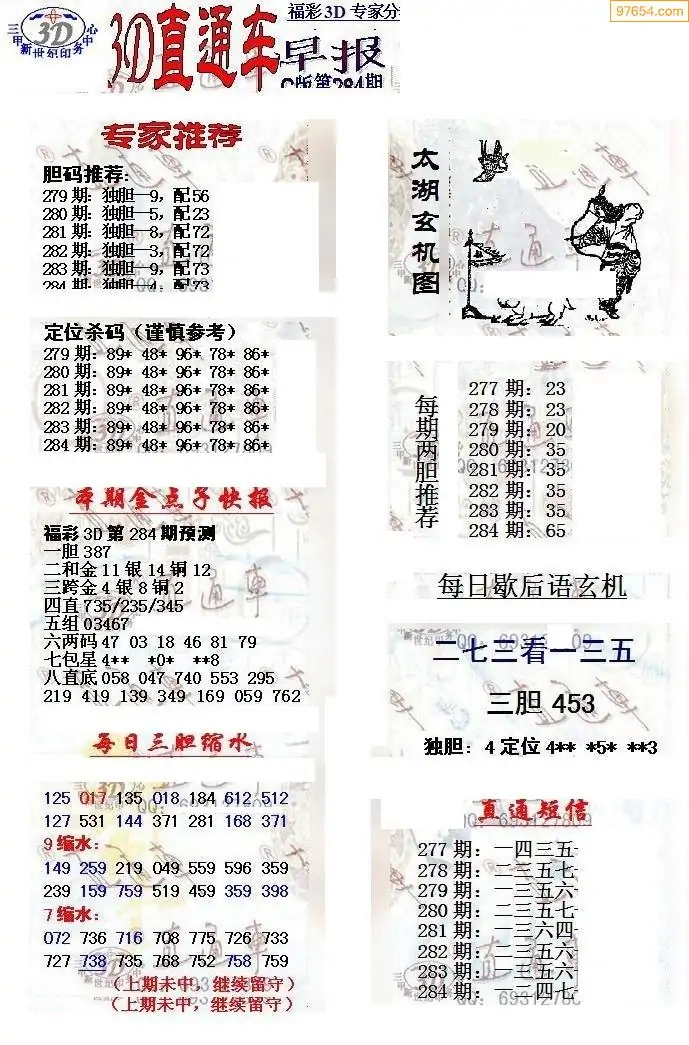 97654.com
福彩3D 专家分
三甲
3D
心中
新世纪印务
3D直通车
早报
C版第284期
专家推荐
胆码推荐:
279期: 独胆—9, 配56
280期: 独胆—5, 配23
281期: 独胆—8, 配72
282期: 独胆—3, 配72
283期: 独胆—9, 配73
284期: 独胆—4, 配73
定位杀码（谨慎参考）
279期: 89* 48* 96* 78* 86*
280期: 89* 48* 96* 78* 86*
281期: 89* 48* 96* 78* 86*
282期: 89* 48* 96* 78* 86*
283期: 89* 48* 96* 78* 86*
284期: 89* 48* 96* 78* 86*
本期金点子快报
福彩3D第284期预测
一胆387
二和金11银14铜12
三跨金4银8铜2
四直735/235/345
五组03467
六两码47 03 18 46 81 79
七包星4** *0* **8
八直底058 047 740 553 295
219 419 139 349 169 059 762
每日三胆缩水
125 017 135 018 184 612 512
127 531 144 371 281 168 371
9缩水:
149 259 219 049 559 596 359
239 159 759 519 459 359 398
7缩水:
072 736 716 708 775 726 733
727 738 735 768 752 758 759
（上期未中，继续留守）
（上期未中，继续留守）
太湖玄机图
每期两胆推荐
277期: 23
278期: 23
279期: 20
280期: 35
281期: 35
282期: 35
283期: 35
284期: 65
每日歇后语玄机
二七三看一三五
三胆 453
独胆: 4 定位4** *5* **3
直通短信
QQ: 693127809
277期: 一四三五
278期: 二三五七
279期: 一三五六
280期: 二三五七
281期: 一三六四
282期: 二三五六
283期: 一三五六
284期: 一二四七